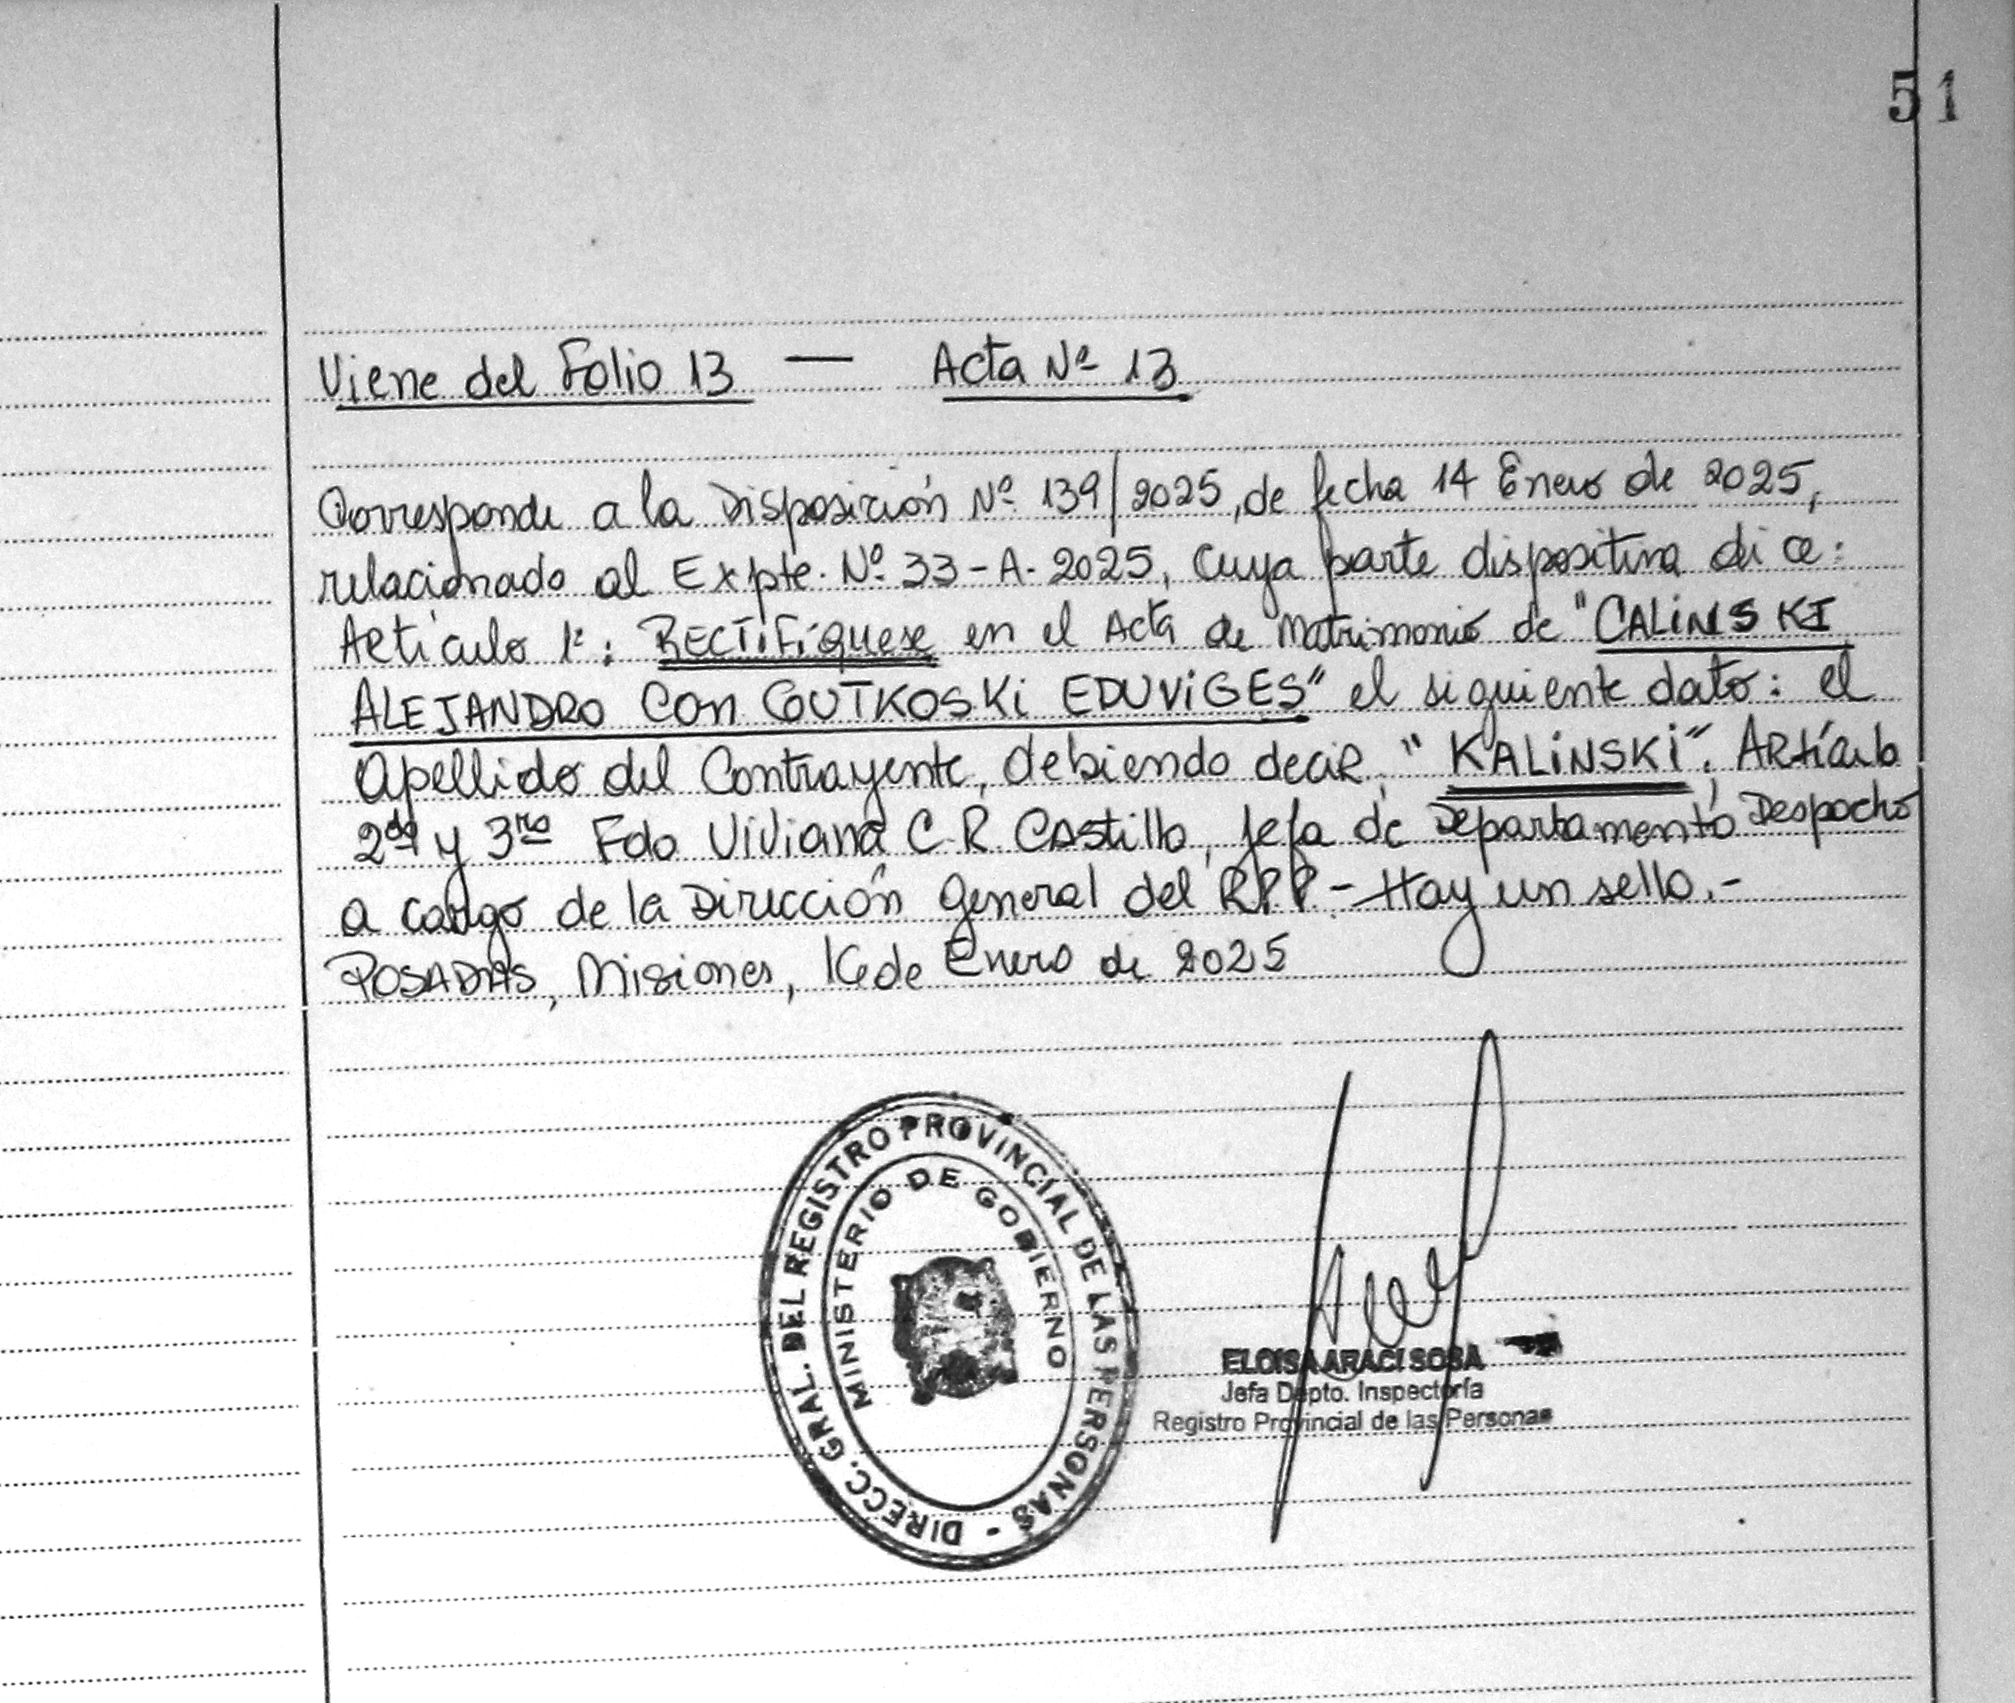 51
Viene del Folio 13 — Acta Nº 13
Corresponde a la Disposición Nº 139/2025, de fecha 14 Enero de 2025,
relacionado al Expte. Nº 33-A-2025, cuya parte dispositiva dice:
Artículo 1º: RECTIFÍQUESE en el Acta de Matrimonio de "CALINSKI
ALEJANDRO CON GUTKOSKI EDUVIGES" el siguiente dato: el
Apellido del Contrayente, debiendo decir, "KALINSKI". Artículo
2do y 3ro Fdo Viviana C.R. Castillo, Jefa de Departamento Despacho
a cargo de la Dirección General del RPP - Hay un sello.-
POSADAS, Misiones, 16 de Enero de 2025
DIRECC. GRAL. DEL REGISTRO PROVINCIAL DE LAS PERSONAS -
MINISTERIO DE GOBIERNO
ELOISA ARACI SOSA
Jefa Depto. Inspectoría
Registro Provincial de las Personas